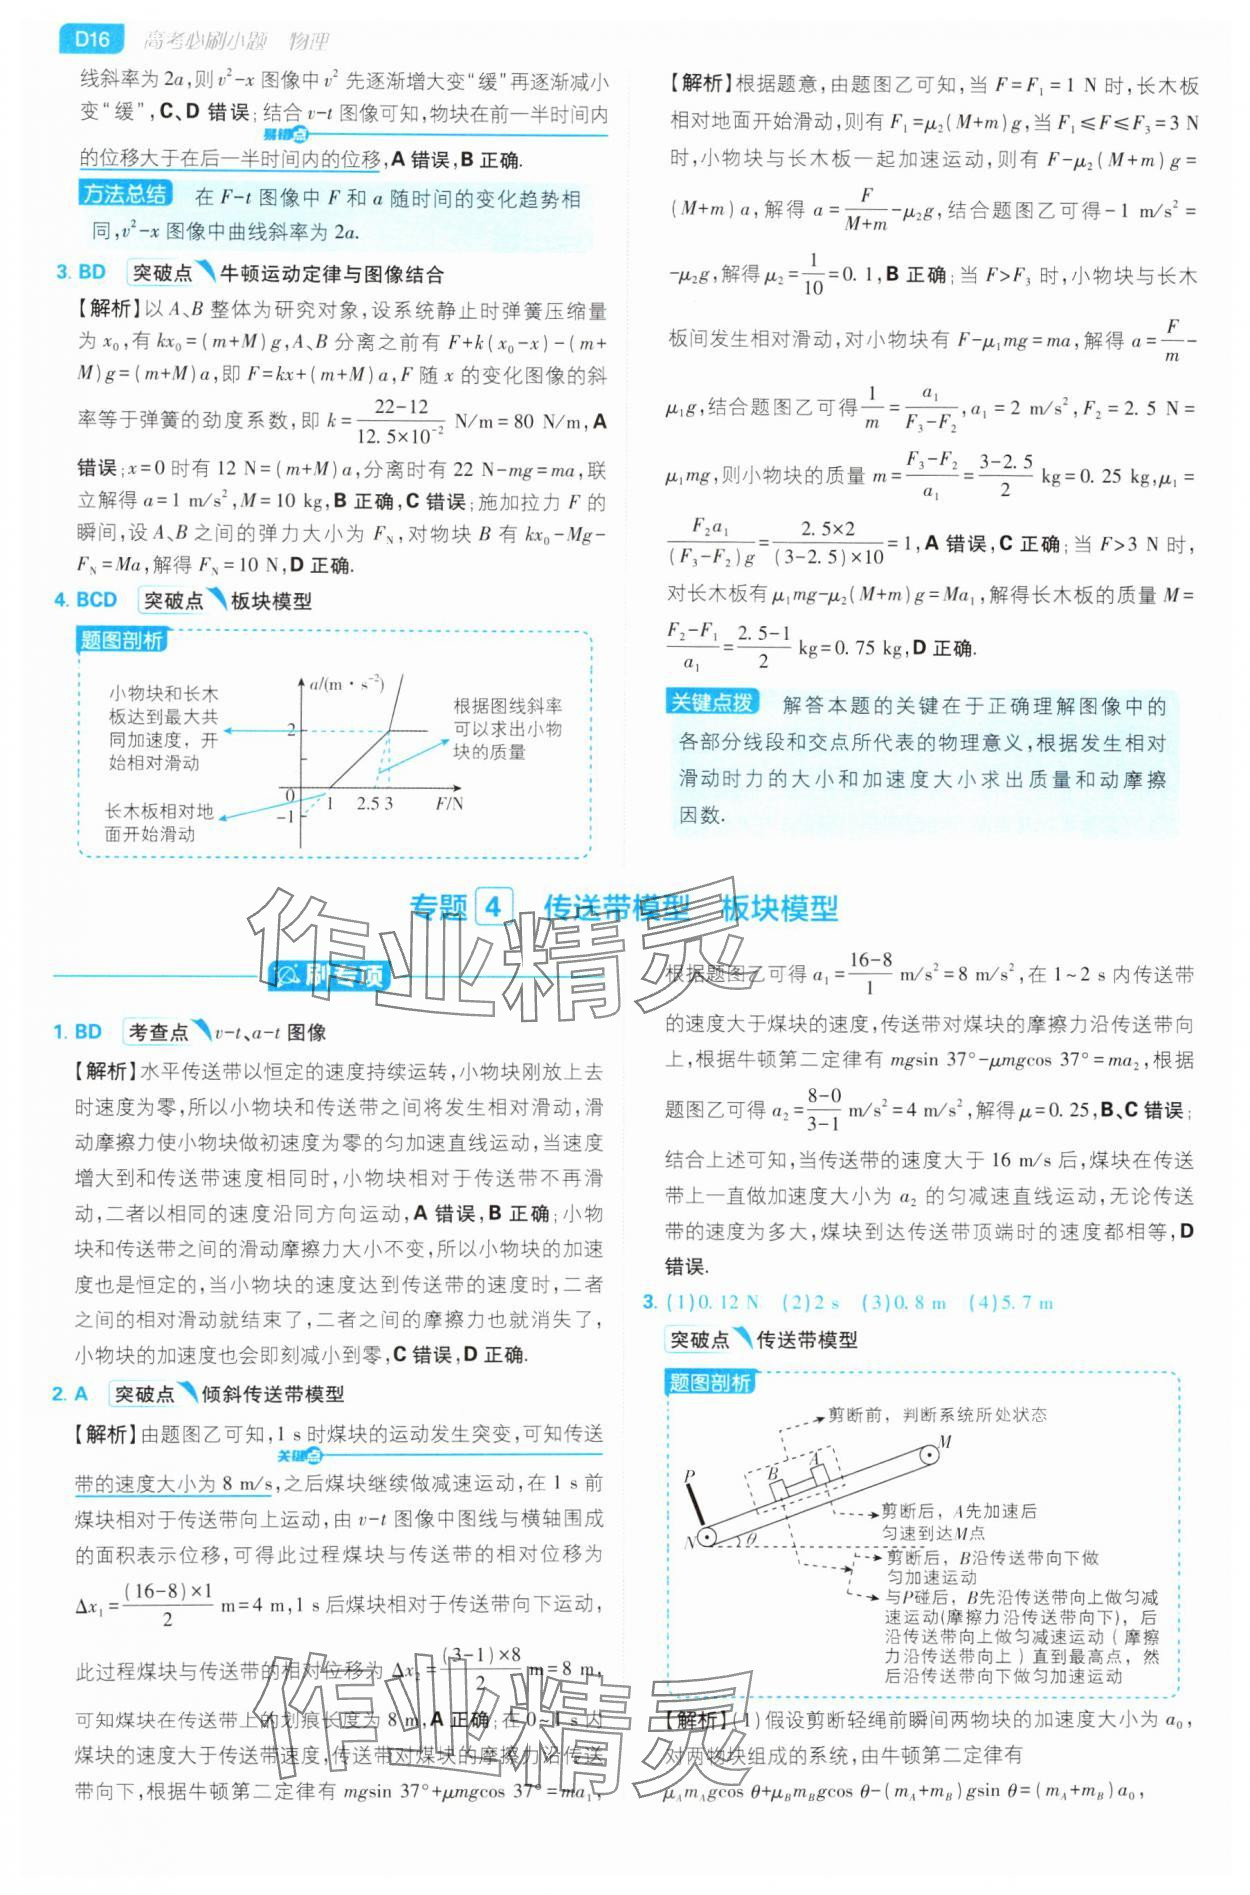 D16 高考必刷小题 物理
线斜率为 2a,则 v²-x 图像中 v² 先逐渐增大变“缓”再逐渐减小
变“缓”,C、D 错误;结合 v-t 图像可知,物块在前一半时间内
易错点
的位移大于在后一半时间内的位移,A 错误,B 正确.
方法总结 在 F-t 图像中 F 和 a 随时间的变化趋势相
同,v²-x 图像中曲线斜率为 2a.
3. BD 突破点 牛顿运动定律与图像结合
【解析】以 A、B 整体为研究对象,设系统静止时弹簧压缩量
为 x₀,有 kx₀=(m+M)g,A、B 分离之前有 F+k(x₀-x)-(m+
M)g=(m+M)a,即 F=kx+(m+M)a,F 随 x 的变化图像的斜
率等于弹簧的劲度系数,即 k=(22-12)/(12.5×10⁻²) N/m=80 N/m,A
错误;x=0 时有 12 N=(m+M)a,分离时有 22 N-mg=ma,联
立解得 a=1 m/s²,M=10 kg,B 正确,C 错误;施加拉力 F 的
瞬间,设 A、B 之间的弹力大小为 F_N,对物块 B 有 kx₀-Mg-
F_N=Ma,解得 F_N=10 N,D 正确.
4. BCD 突破点 板块模型
题图剖析
小物块和长木
板达到最大共
同加速度，开
始相对滑动
长木板相对地
面开始滑动
a/(m·s⁻²)
2
0
-1
1 2.5 3 F/N
根据图线斜率
可以求出小物
块的质量
【解析】根据题意,由题图乙可知,当 F=F₁=1 N 时,长木板
相对地面开始滑动,则有 F₁=μ₂(M+m)g,当 F₁≤F≤F₃=3 N
时,小物块与长木板一起加速运动,则有 F-μ₂(M+m)g=
(M+m)a,解得 a=F/(M+m)-μ₂g,结合题图乙可得-1 m/s²=
-μ₂g,解得 μ₂=1/10=0.1,B 正确;当 F>F₃ 时,小物块与长木
板间发生相对滑动,对小物块有 F-μ₁mg=ma,解得 a=F/m-
μ₁g,结合题图乙可得1/m=a₁/(F₃-F₂),a₁=2 m/s²,F₂=2.5 N=
μ₁mg,则小物块的质量 m=(F₃-F₂)/a₁=(3-2.5)/2 kg=0.25 kg,μ₁=
F₂a₁/((F₃-F₂)g)=(2.5×2)/((3-2.5)×10)=1,A 错误,C 正确;当 F>3 N 时,
对长木板有 μ₁mg-μ₂(M+m)g=Ma₁,解得长木板的质量 M=
(F₂-F₁)/a₁=(2.5-1)/2 kg=0.75 kg,D 正确.
关键点拨 解答本题的关键在于正确理解图像中的
各部分线段和交点所代表的物理意义,根据发生相对
滑动时力的大小和加速度大小求出质量和动摩擦
因数.
专题 4 传送带模型 板块模型
刷专项
1. BD 考查点 v-t、a-t 图像
【解析】水平传送带以恒定的速度持续运转,小物块刚放上去
时速度为零,所以小物块和传送带之间将发生相对滑动,滑
动摩擦力使小物块做初速度为零的匀加速直线运动,当速度
增大到和传送带速度相同时,小物块相对于传送带不再滑
动,二者以相同的速度沿同方向运动,A 错误,B 正确;小物
块和传送带之间的滑动摩擦力大小不变,所以小物块的加速
度也是恒定的,当小物块的速度达到传送带的速度时,二者
之间的相对滑动就结束了,二者之间的摩擦力也就消失了,
小物块的加速度也会即刻减小到零,C 错误,D 正确.
2. A 突破点 倾斜传送带模型
【解析】由题图乙可知,1 s 时煤块的运动发生突变,可知传送
关键点
带的速度大小为 8 m/s,之后煤块继续做减速运动,在 1 s 前
煤块相对于传送带向上运动,由 v-t 图像中图线与横轴围成
的面积表示位移,可得此过程煤块与传送带的相对位移为
Δx₁=((16-8)×1)/2 m=4 m,1 s 后煤块相对于传送带向下运动,
此过程煤块与传送带的相对位移为 Δx₂=((3-1)×8)/2 m=8 m,
可知煤块在传送带上的划痕长度为 8 m,A 正确;在 0~1 s 内
煤块的速度大于传送带速度,传送带对煤块的摩擦力沿传送
带向下,根据牛顿第二定律有 mgsin 37°+μmgcos 37°=ma₁,
根据题图乙可得 a₁=(16-8)/1 m/s²=8 m/s²,在 1~2 s 内传送带
的速度大于煤块的速度,传送带对煤块的摩擦力沿传送带向
上,根据牛顿第二定律有 mgsin 37°-μmgcos 37°=ma₂,根据
题图乙可得 a₂=(8-0)/(3-1) m/s²=4 m/s²,解得 μ=0.25,B、C 错误;
结合上述可知,当传送带的速度大于 16 m/s 后,煤块在传送
带上一直做加速度大小为 a₂ 的匀减速直线运动,无论传送
带的速度为多大,煤块到达传送带顶端时的速度都相等,D
错误.
3. (1)0.12 N (2)2 s (3)0.8 m (4)5.7 m
突破点 传送带模型
题图剖析
剪断前，判断系统所处状态
M
A
B
P
N
θ
剪断后，A先加速后
匀速到达M点
剪断后，B沿传送带向下做
匀加速运动
与P碰后，B先沿传送带向上做匀减
速运动(摩擦力沿传送带向下)，后
沿传送带向上做匀减速运动(摩擦
力沿传送带向上)直到最高点，然
后沿传送带向下做匀加速运动
【解析】(1)假设剪断轻绳前瞬间两物块的加速度大小为 a₀,
对两物块组成的系统,由牛顿第二定律有
μ_A m_A gcos θ+μ_B m_B gcos θ-(m_A+m_B)gsin θ=(m_A+m_B)a₀,
作业精灵
作业精灵